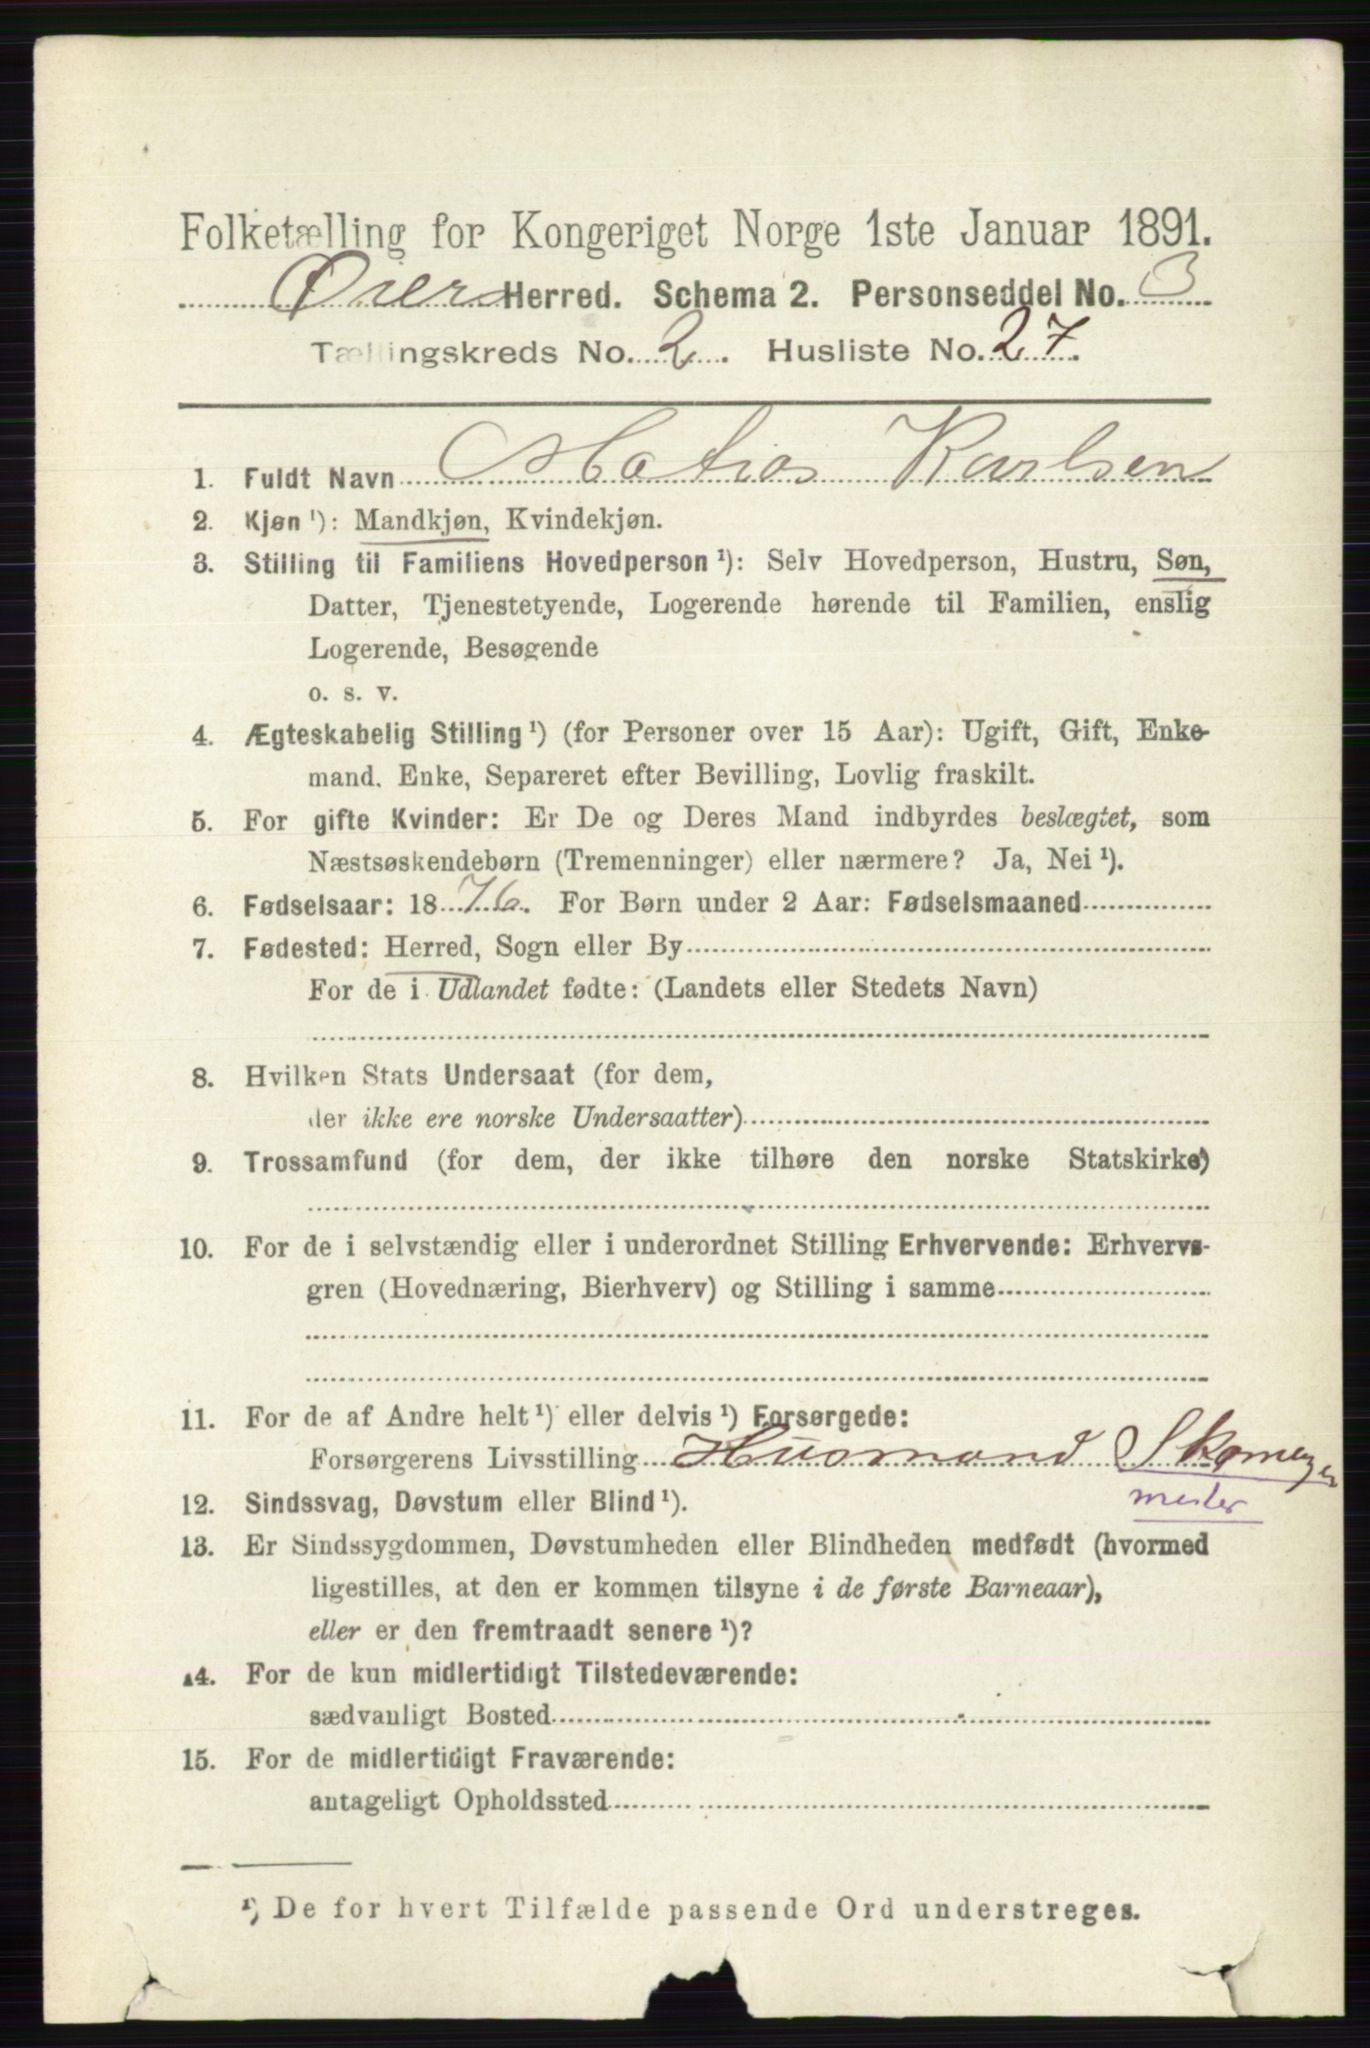 Folketælling for Kongeriget Norge 1ste Januar 1891.
Øier Herred. Schema 2. Personseddel No. 3
Tællingskreds No. 2. Husliste No. 27.
1. Fuldt Navn Matias Karlsen
2. Kjøn ¹): Mandkjøn, Kvindekjøn.
3. Stilling til Familiens Hovedperson ¹): Selv Hovedperson, Hustru, Søn,
Datter, Tjenestetyende, Logerende hørende til Familien, enslig
Logerende, Besøgende
o. s. v.
4. Ægteskabelig Stilling ¹) (for Personer over 15 Aar): Ugift, Gift, Enke-
mand. Enke, Separeret efter Bevilling, Lovlig fraskilt.
5. For gifte Kvinder: Er De og Deres Mand indbyrdes beslægtet, som
Næstsøskendebørn (Tremenninger) eller nærmere? Ja, Nei ¹).
6. Fødselsaar: 1876. For Børn under 2 Aar: Fødselsmaaned
7. Fødested: Herred, Sogn eller By
For de i Udlandet fødte: (Landets eller Stedets Navn)
8. Hvilken Stats Undersaat (for dem,
der ikke ere norske Undersaatter)
9. Trossamfund (for dem, der ikke tilhøre den norske Statskirke)
10. For de i selvstændig eller i underordnet Stilling Erhvervende: Erhvervs-
gren (Hovednæring, Bierhverv) og Stilling i samme
11. For de af Andre helt ¹) eller delvis ¹) Forsørgede:
Forsørgerens Livsstilling Husmand
mester
12. Sindssvag, Døvstum eller Blind ¹).
13. Er Sindssygdommen, Døvstumheden eller Blindheden medfødt (hvormed
ligestilles, at den er kommen tilsyne i de første Barneaar),
eller er den fremtraadt senere ¹)?
14. For de kun midlertidigt Tilstedeværende:
sædvanligt Bosted
15. For de midlertidigt Fraværende:
antageligt Opholdssted
¹) De for hvert Tilfælde passende Ord understreges.